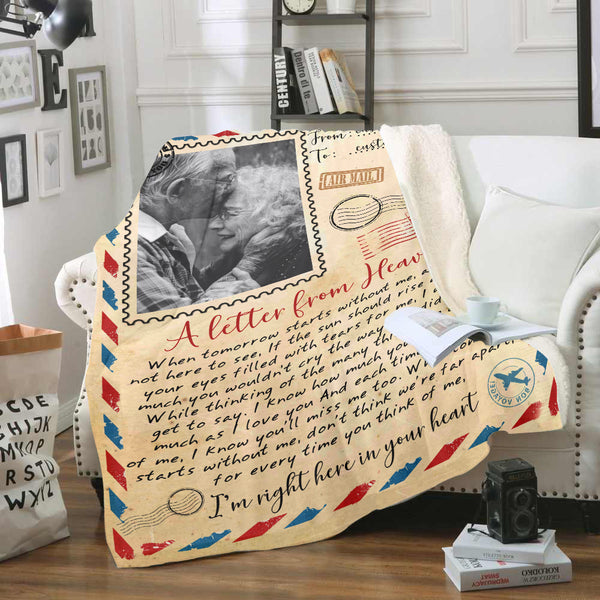 CENTURY
Dentro di te
From:
To:
AIR MAIL
A letter from Heav
When tomorrow starts without me, a
not here to see, If the sun should rise
your eyes filled with tears for me, I
much you wouldn't cry the way
While thinking of the many thin
get to say. I know how much y
much as I love you And each time
of me, I know you'll miss me too. W
starts without me, don't think we're far apart
for every time you think of me,
I'm right here in your heart
BON VOYAGE!
CDE
HIJ
NOP
RST
WXYZ
KOŁODKO
WĘDRUJĄCY
ŚWIAT
KOLODKO